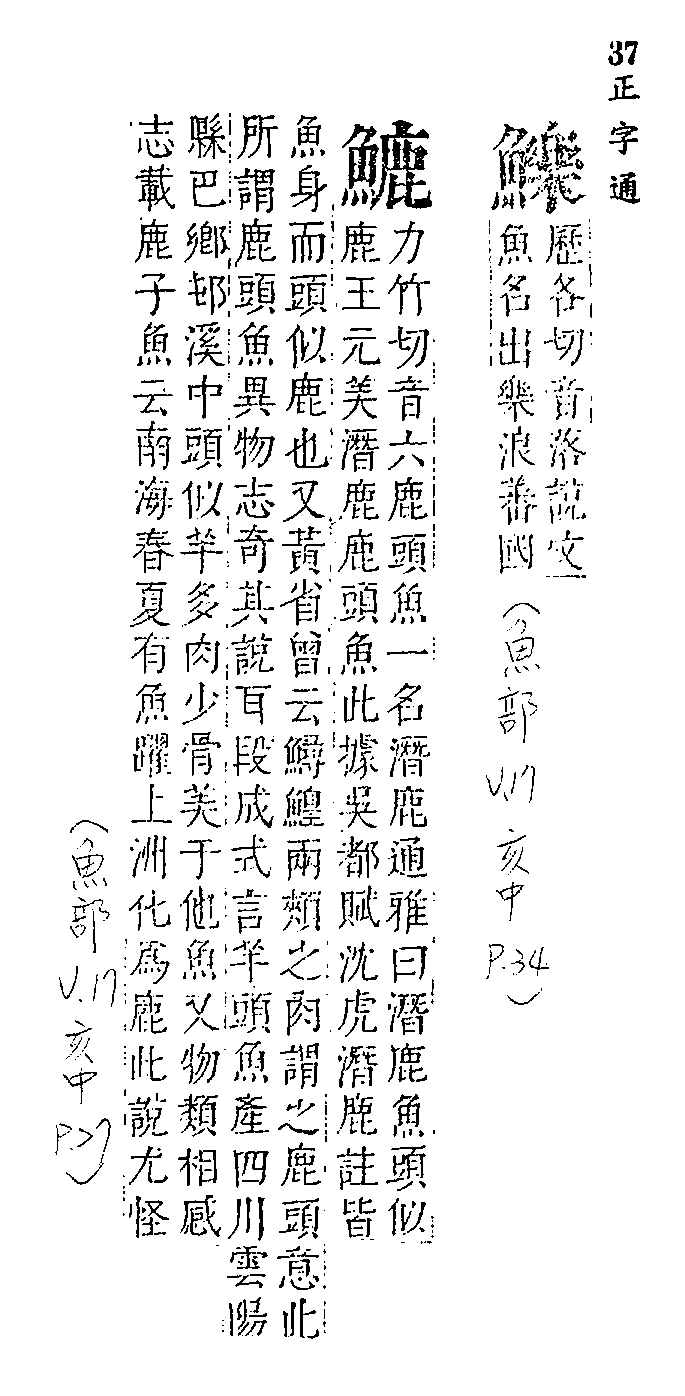 37 正字通
鱳
歷各切音洛說文
魚名出樂浪番國
(魚部 V.17 亥中 P.34)
䴪力竹切音六鹿頭魚一名潛鹿通雅曰潛鹿魚頭似
鹿王元美潛鹿鹿頭魚此據吳都賦沈虎潛鹿註皆
魚身而頭似鹿也又黃省曾云鱘鰉兩頰之肉謂之鹿頭意此
所謂鹿頭魚異物志奇其說耳段成式言羊頭魚產四川雲陽
縣巴鄉邨溪中頭似羊多肉少骨美于他魚又物類相感
志載鹿子魚云南海春夏有魚躍上洲化爲鹿此說尤怪
(魚部 V.17 亥中 P.27)